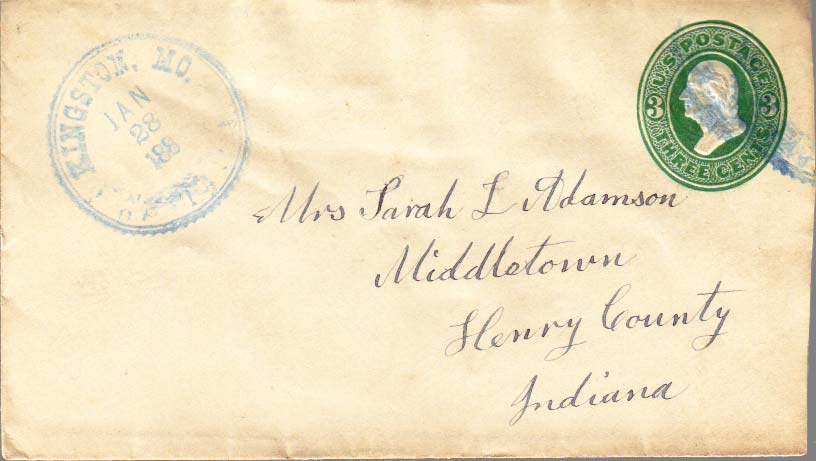 KINGSTON, MO.
JAN
28
188
U.S. POSTAGE
3 3
THREE CENTS
Mrs Sarah L Adamson
Middletown
Henry County
Indiana